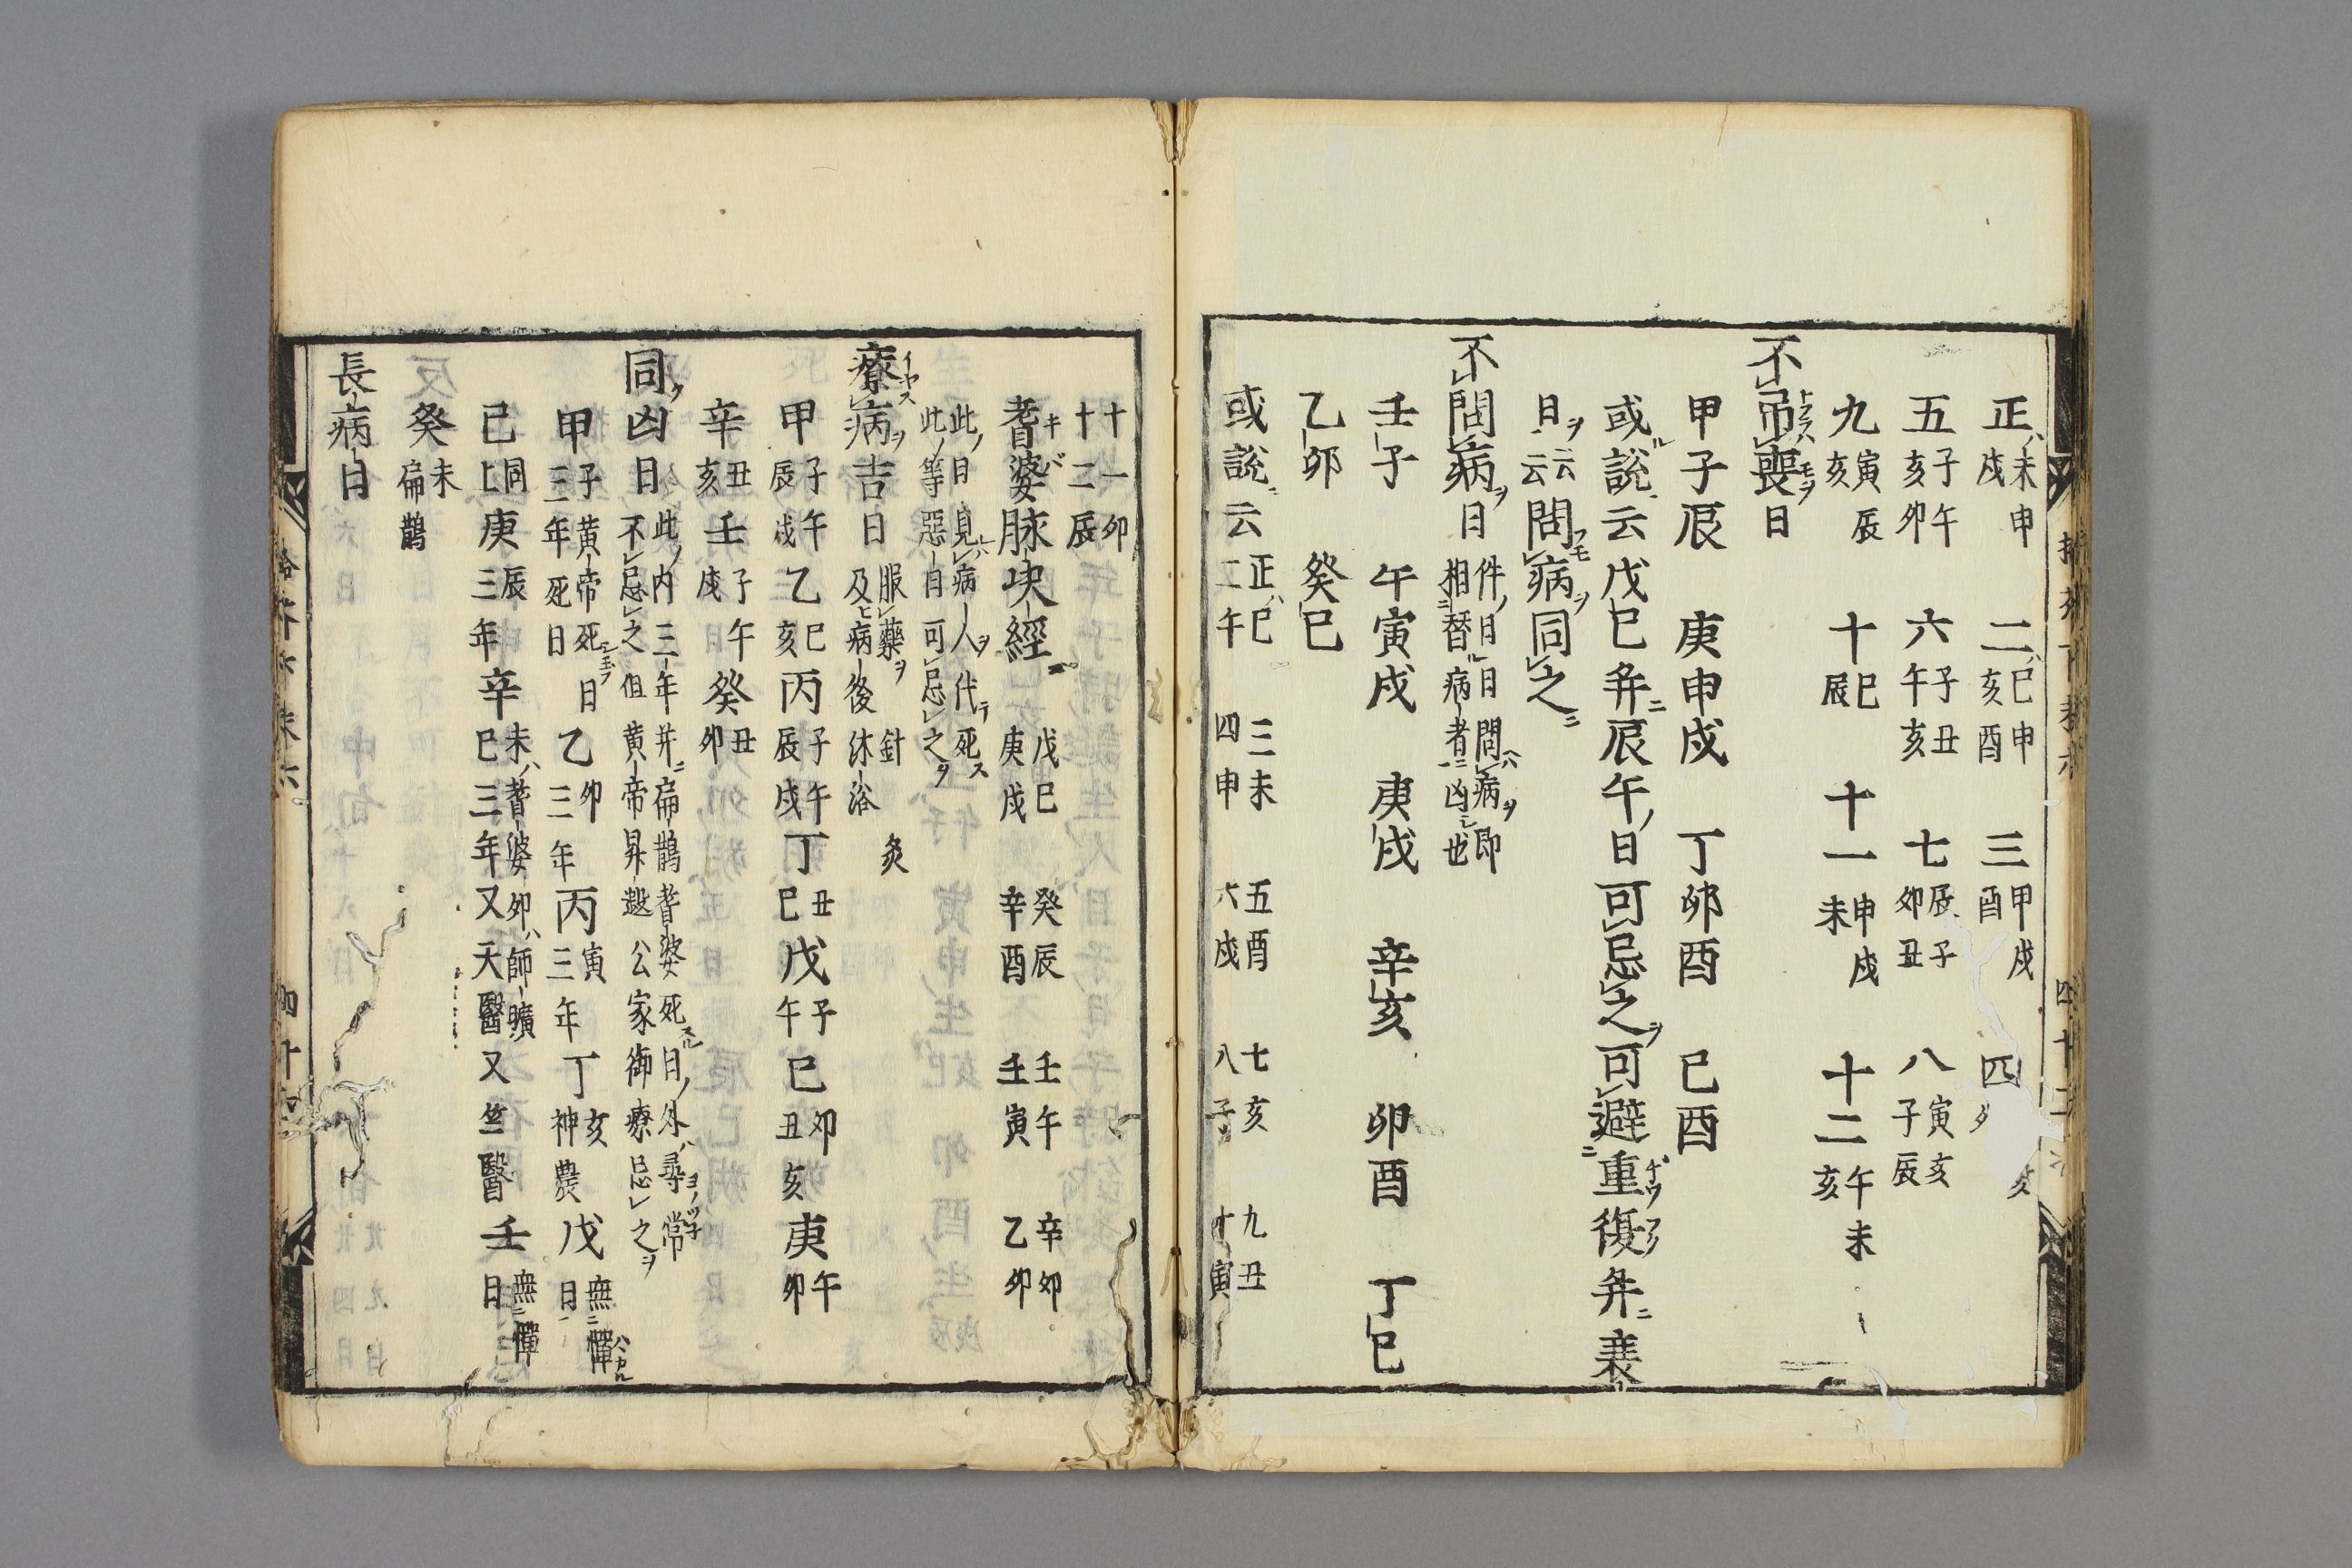 正ハ 未申戌 二ハ 巳申亥酉 三 甲戌酉 四
五 子午亥卯 六 子丑午亥 七 辰子卯丑 八 寅亥子辰
九 寅辰亥 十 巳辰 十一 申戌未 十二 午未亥
不レ吊レ喪日
甲子辰 庚申戌 丁卯酉 己酉
或説云戊巳并辰午ノ日可レ忌レ之ヲ可レ避二重復并ニ衰
日ヲ一云云問レ病ヲ同レ之ニ
不レ問レ病ヲ日 件ノ日日問レ病ヲ即
相二替ル病者一ニ凶也
壬子 午寅戌 庚戌 辛亥 卯酉 丁巳
乙卯 癸巳
或説ニ云 正ハ巳 二午 三未 四申 五酉 六戌 七亥 八子 九丑 十寅
十一卯 十二辰
耆婆脉决經 戊巳 庚戌 癸辰 辛酉 壬午 壬寅 辛卯 乙卯
此ノ日見レ病人ヲ代テ死ス
此ノ等惡日可レ忌レ之ヲ
療レ病ヲ吉日 服レ藥ヲ 針 灸
及ヒ病後沐浴
甲 子午辰戌 乙 巳亥 丙 子午辰戌 丁 丑巳 戊 子午 己 卯丑亥 庚 午卯
辛 丑亥 壬 子午戌 癸 丑卯
同ク凶日 此ノ内三年并ニ扁鵲耆婆死スル日ノ外ハ尋常
不レ忌レ之但黄帝昇遐公家御療忌レ之ヲ
甲 子黄帝死日三年死日 乙 卯三年 丙 寅三年 丁 亥神農 戊 無レ憚日
己 同上 庚 辰三年 辛 未ハ耆婆卯ハ師曠巳三年又天醫又竺醫 壬 無レ憚日
癸 未扁鵲
長病日